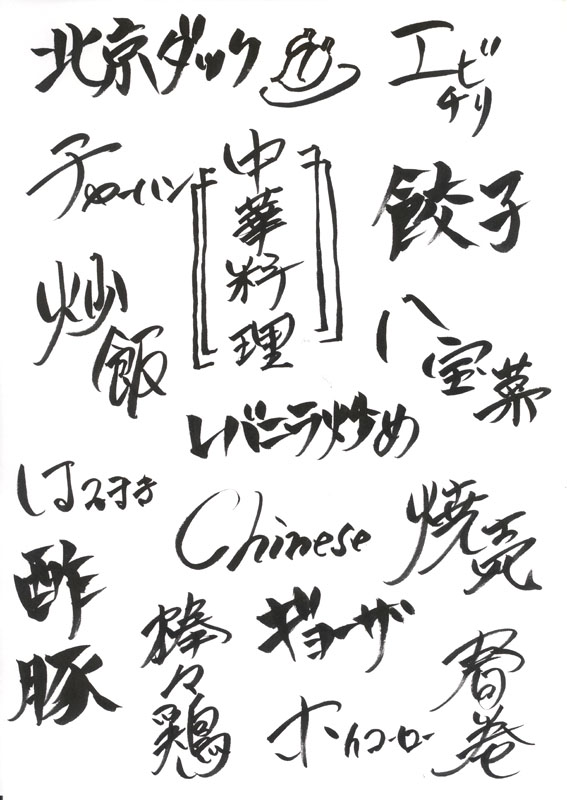 北京ダック
エビ
チリ
チャーハン
中華料理
餃子
炒飯
八宝菜
レバニラ炒め
はるまき
Chinese
焼売
酢豚
棒々鶏
ギョーザ
春巻
ホイコーロー